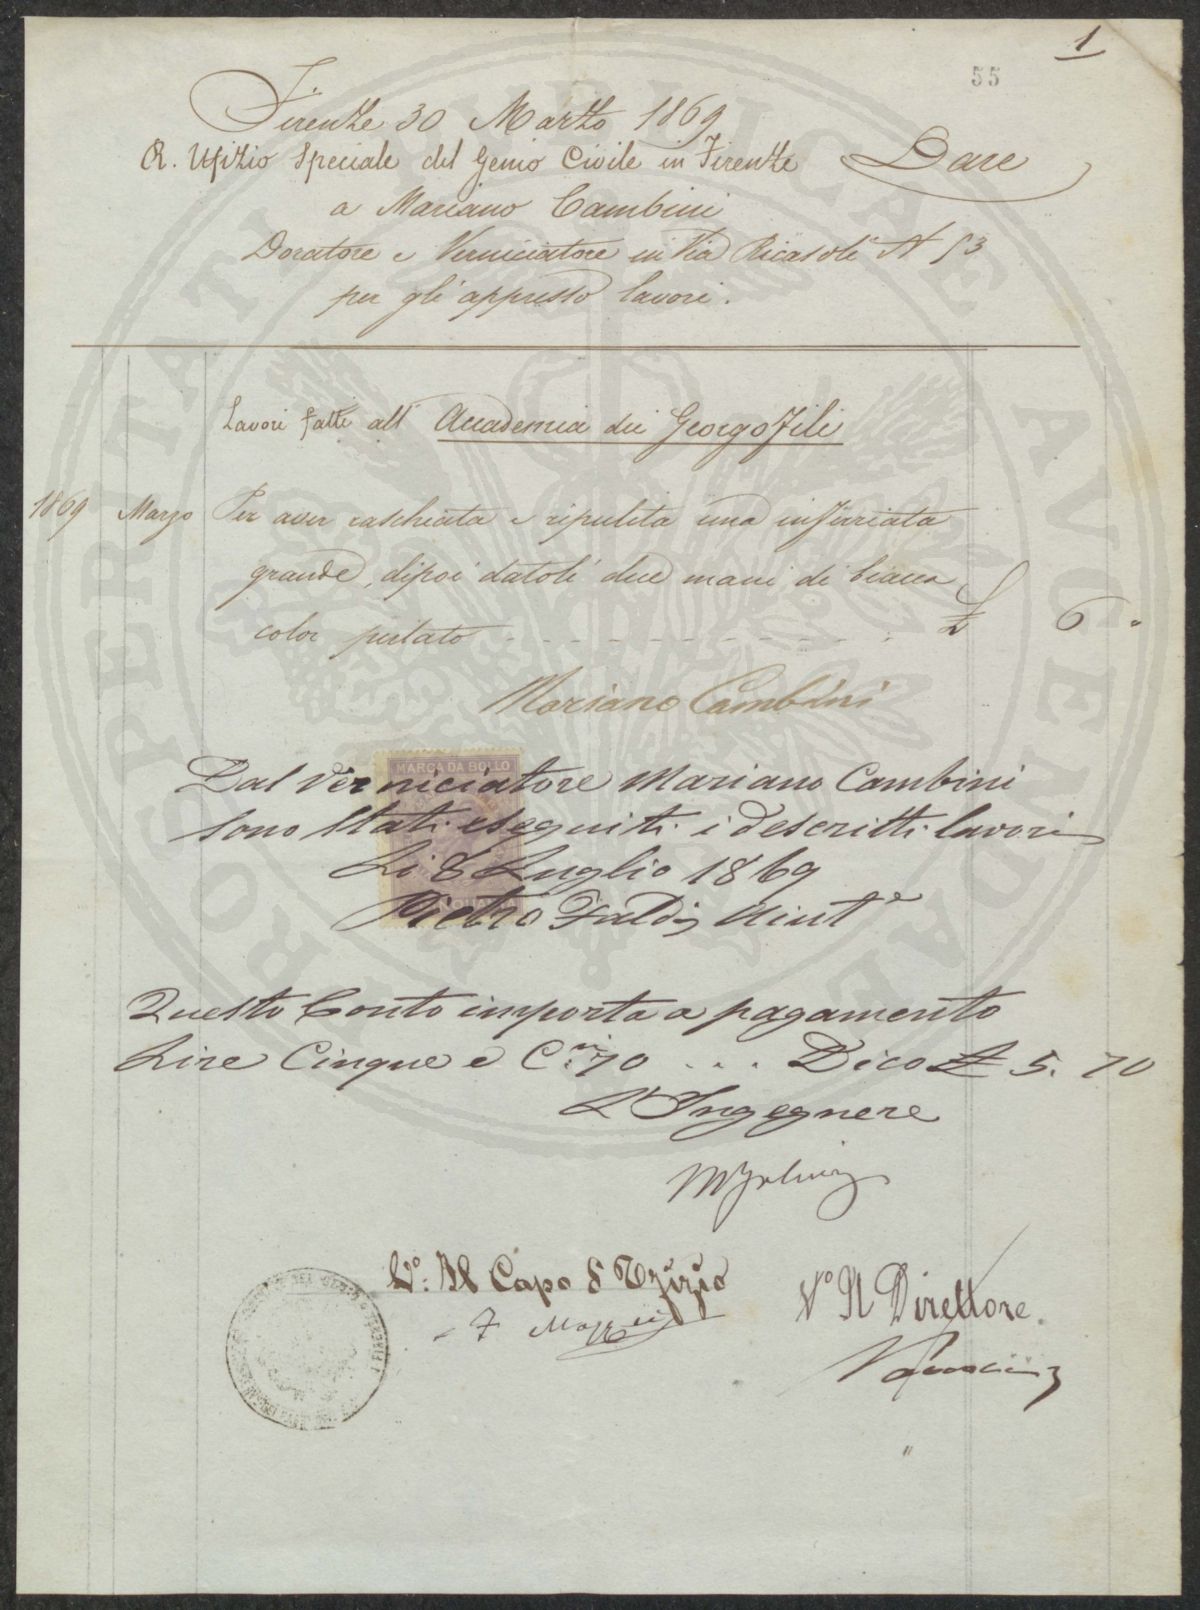 1
55
Firenze 30 Marzo 1869
R. Ufizio Speciale del Genio Civile in Firenze Dare
a Mariano Cambini
Doratore e Verniciatore in Via Ricasoli N 53
per gli appresso lavori.
Lavori fatti all' Accademia dei Georgofili
1869 Marzo Per aver raschiata e ripulita una inferriata
grande, dipoi datoli due mani di biacca
color perlato £ 6 "
Mariano Cambini
MARCA DA BOLLO
Dal Verniciatore Mariano Cambini
sono stati eseguiti i descritti lavori
Li 8 Luglio 1869
Pietro Faldi Aiutᵉ
Questo Conto importa a pagamento
Lire Cinque e C.mi 70 . . . Dico £ 5. 70
L'Ingegnere
V°: Il Capo d'Ufizio
V° Il Direttore
PROSPERITATI PVBLICAE AVGENDAE